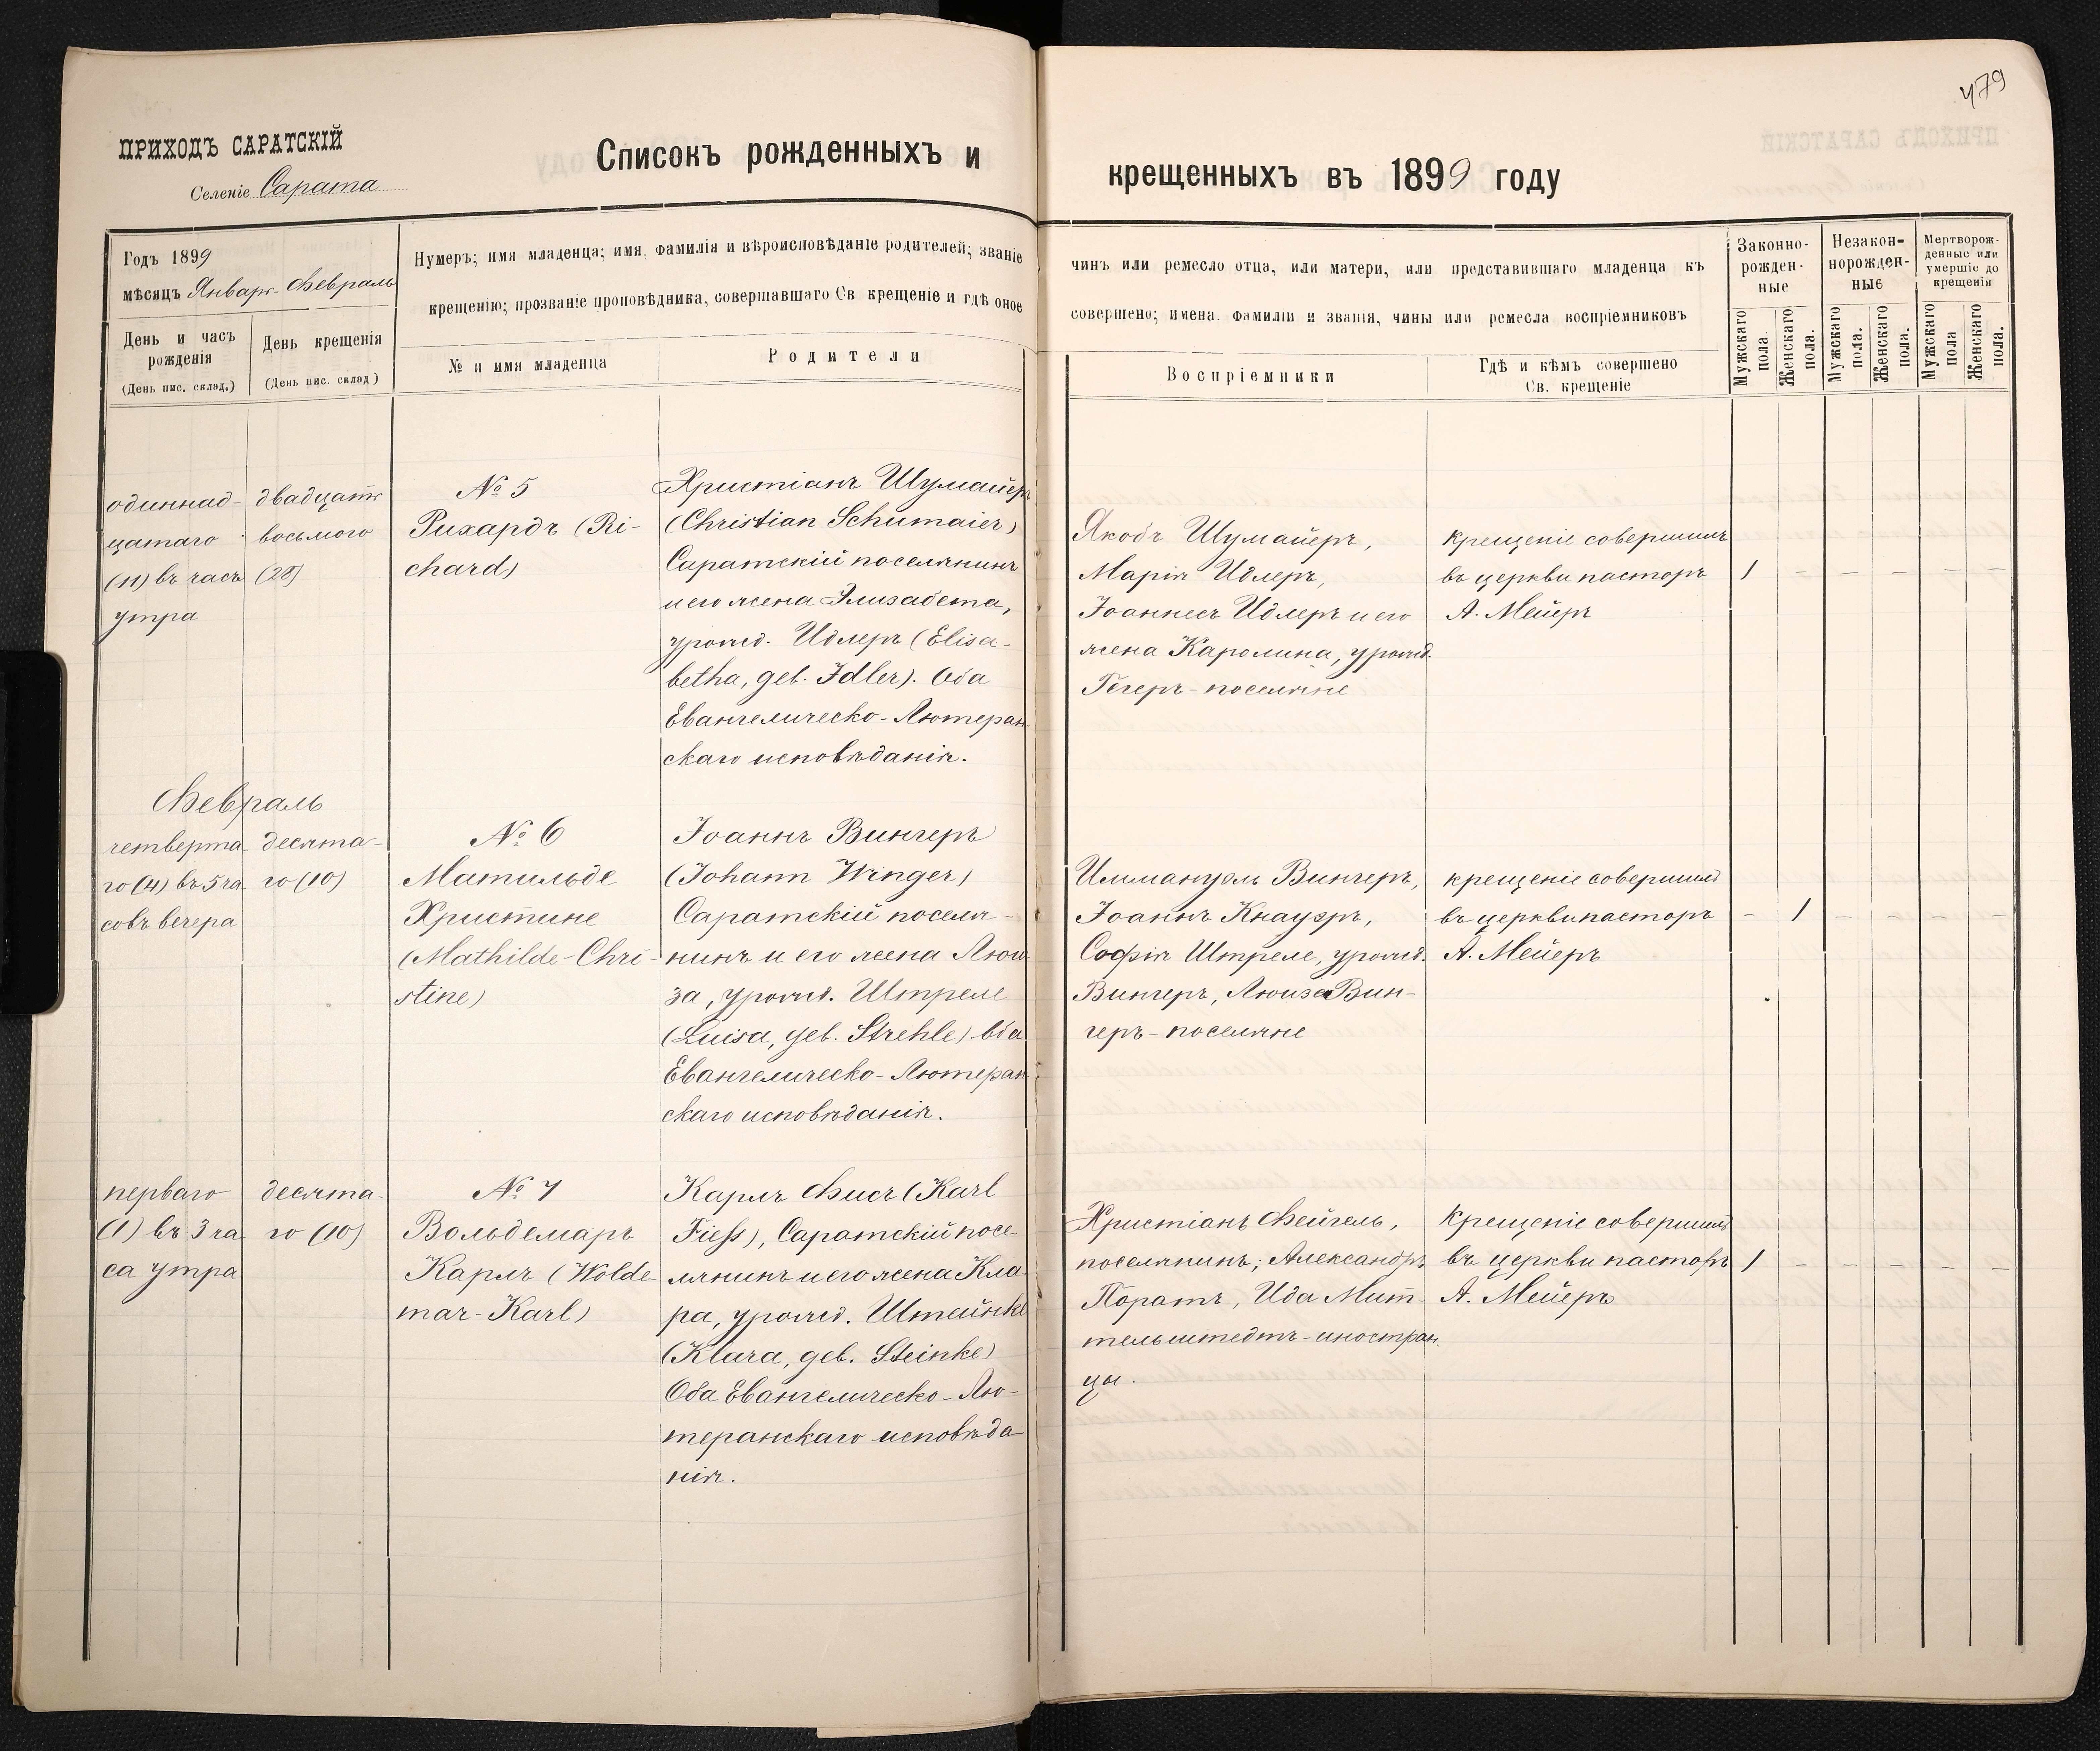 479
ПРИХОДЪ САРАТСКІЙ
Селеніе Сарата
Списокъ рожденныхъ и
крещенныхъ въ 1899 году
Годъ 1899
мѣсяцъ Январь-Февраль
День и часъ
рожденія
(День пис. склад.)
День крещенія
(День пис. склад)
Нумеръ; имя младенца; имя, фамилія и вѣроисповѣданіе родителей; званіе
крещенію; прозваніе проповѣдника, совершавшаго Св крещеніе и гдѣ оное
№ и имя младенца
Родители
чинъ или ремесло отца, или матери, или представившаго младенца къ
совершено; имена фамиліи и званія, чины или ремесла воспріемниковъ
Воспріемники
Гдѣ и кѣмъ совершено
Св. крещеніе
Законно-
рожден-
ные
Незакон-
норожден-
ные
Мертворож-
денные или
умершіе до
крещенія
Мужскаго
пола
Женскаго
пола.
Мужскаго
пола.
Женскаго
пола.
Мужскаго
пола
Женскаго
пола.
одиннад-
цатаго
(11) въ часъ
утра
двадцать
восьмого
(28)
№ 5
Рихардъ (Ri-
chard)
Христіанъ Шумайеръ
(Christian Schumaier)
Саратскій поселянинъ
и его жена Элизабета,
урожд. Идлеръ (Elisa-
betha, geb. Idler). Оба
Евангелическо-Лютеран-
скаго исповѣданія.
Якобъ Шумайеръ,
Марія Идлеръ,
Іоаннесъ Идлеръ и его
жена Каролина, урожд.
Гегеръ-поселяне
крещеніе совершилъ
въ церкви пасторъ
А. Мейеръ
1 - - - - -
Февраль
четверта-
го (4) въ 5 ча-
совъ вечера
десята-
го (10)
№ 6
Матильде
Христине
(Mathilde-Chri-
stine)
Іоаннъ Вингеръ
(Johann Winger)
Саратскій поселя-
нинъ и его жена Люи-
за, урожд. Штреле
(Luisa, geb. Strehle) Оба
Евангелическо-Лютеран-
скаго исповѣданія.
Иммануэль Вингеръ,
Іоаннъ Кнауэръ,
Софія Штреле, урожд.
Вингеръ, Люиза Вин-
геръ-поселяне
крещеніе совершилъ
въ церкви пасторъ
А. Мейеръ
- 1 - - - -
перваго
(1) въ 3 ча-
са утра
десята-
го (10)
№ 7
Вольдемаръ
Карлъ (Wolde-
mar-Karl)
Карлъ Фисъ (Karl
Fiess), Саратскій посе-
лянинъ и его жена Кла-
ра, урожд. Штейнке
(Klara, geb. Steinke)
Оба Евангелическо-Лю-
теранскаго исповѣда-
нія.
Христіанъ Фейгель,
поселянинъ; Александръ
Поратъ, Ида Мит-
тельштедтъ-иностран-
цы.
Крещеніе совершилъ
въ церкви пасторъ
А. Мейеръ
1 - - - - -